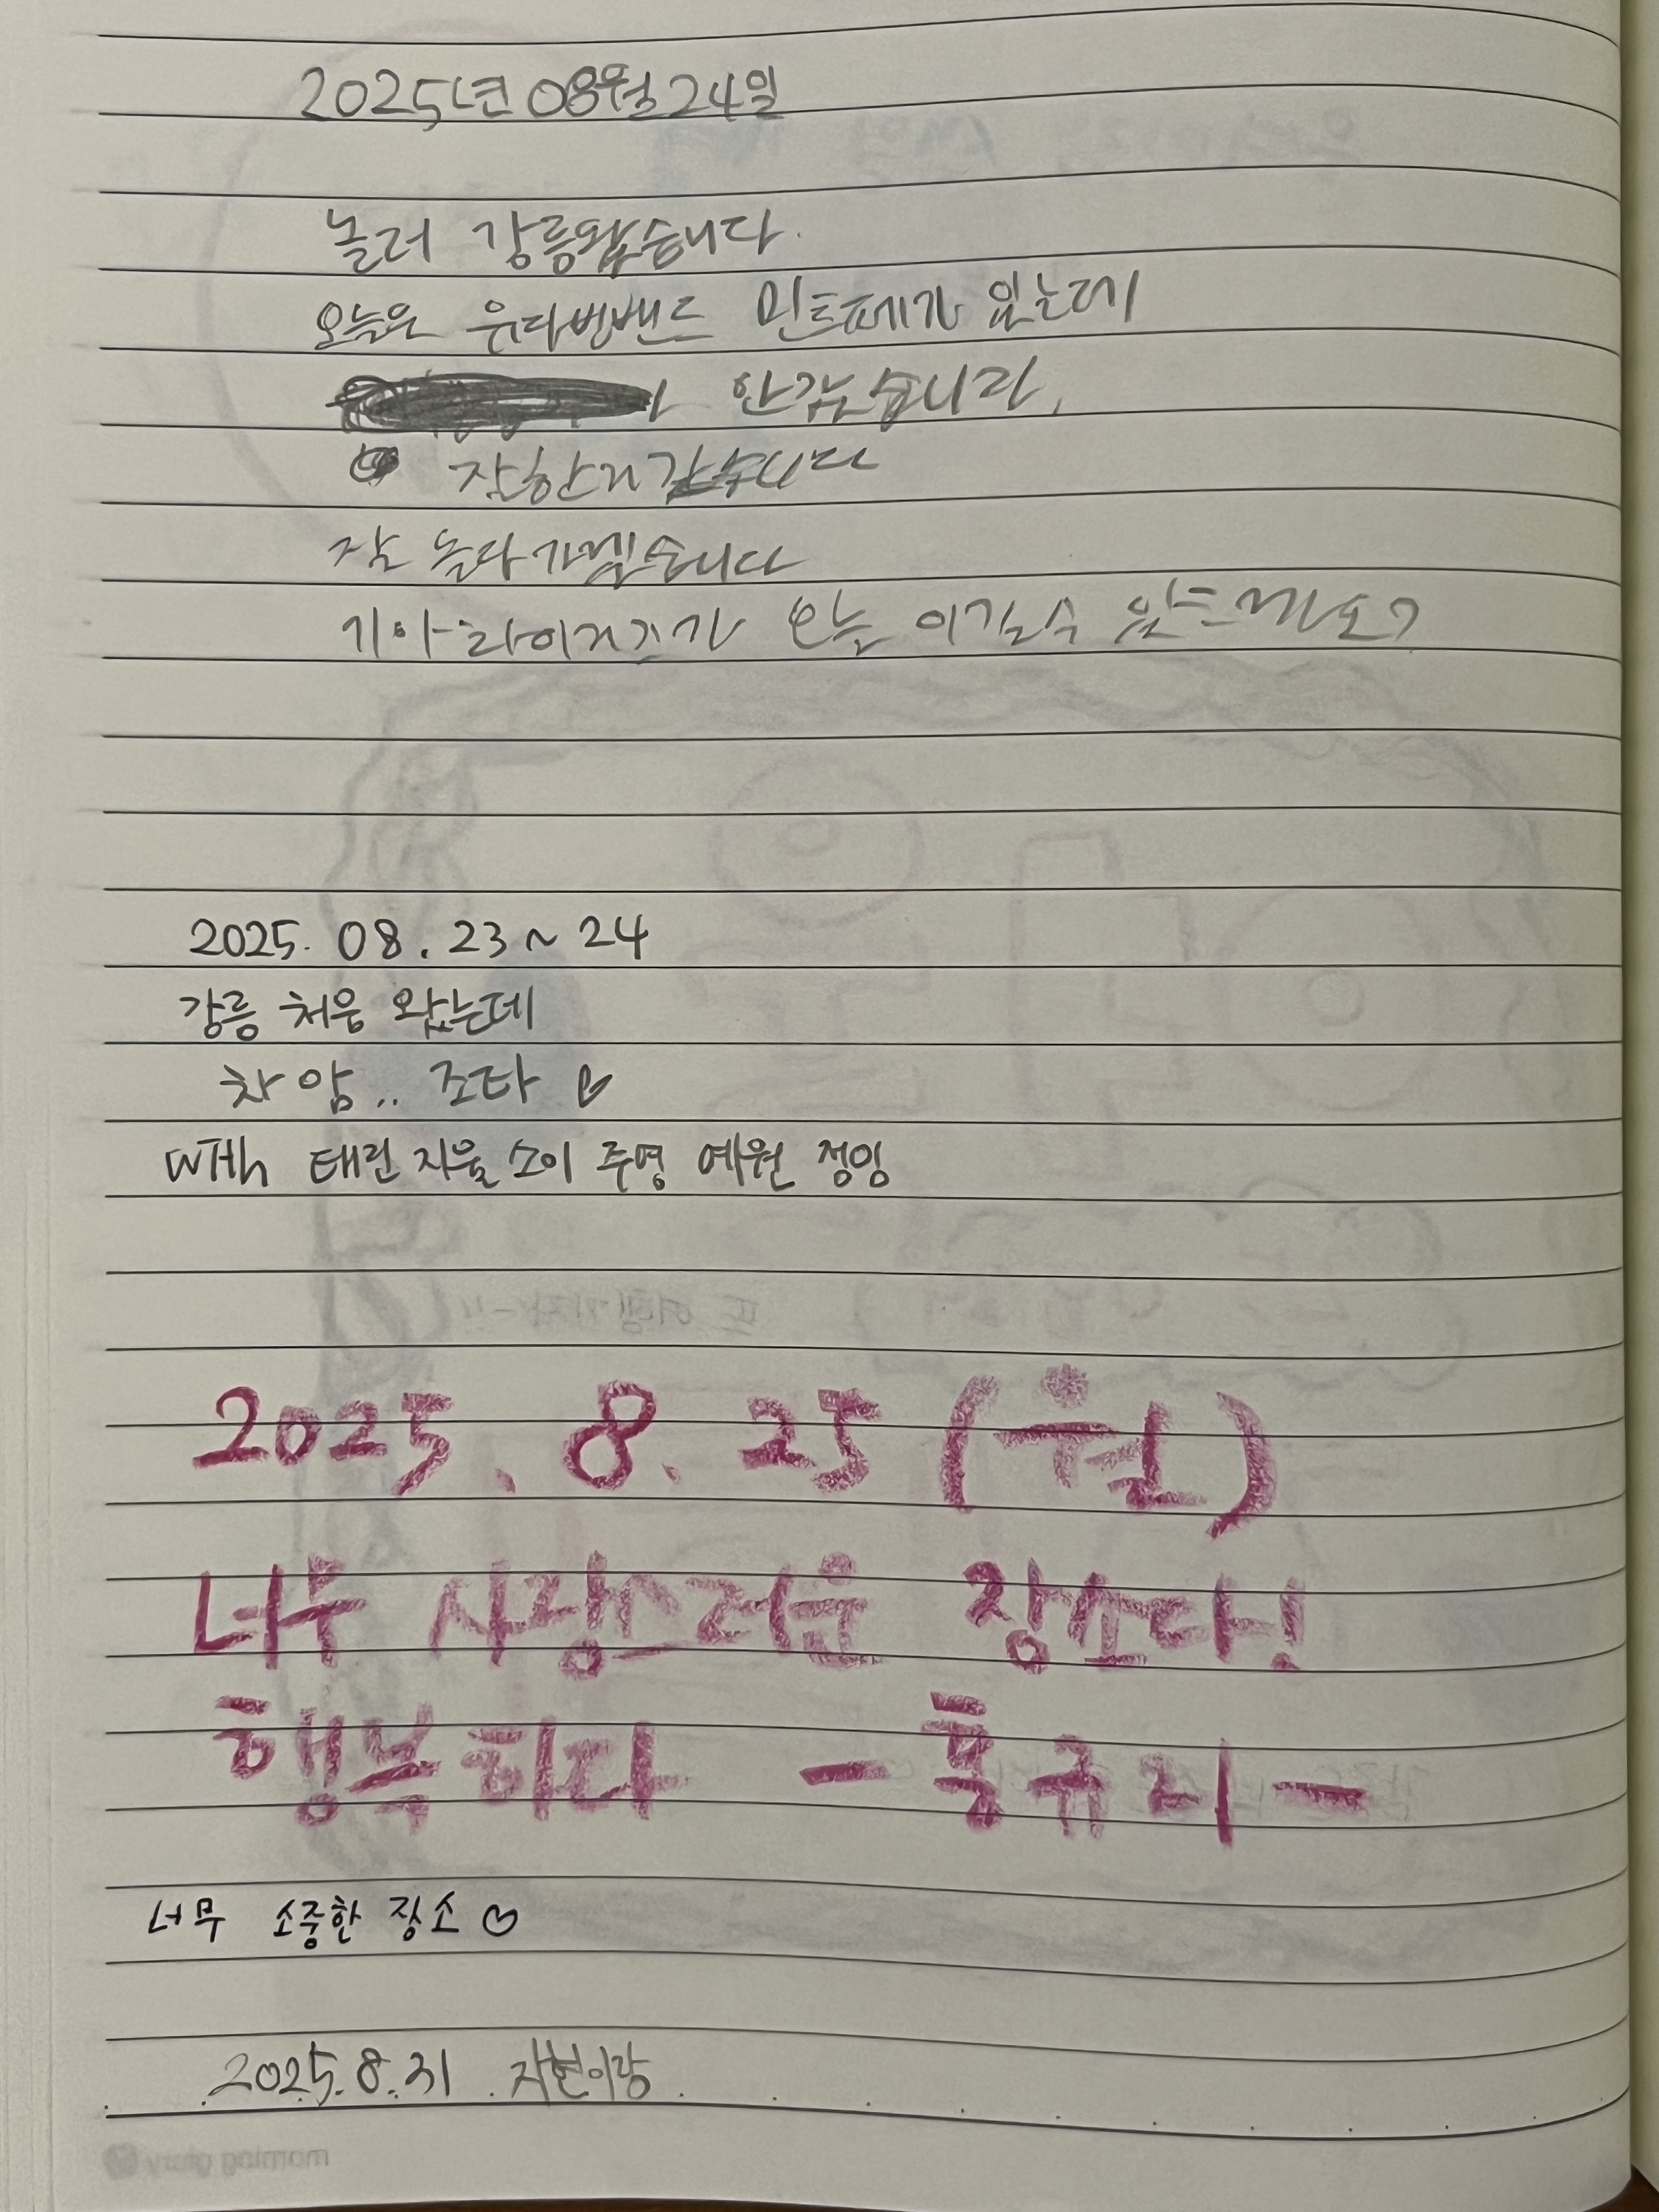 2025년 08월 24일
놀러 강릉왔습니다.
오늘은 유다빈밴드 민트페가 있는데
안갔습니다.
잘한거같습니다
잘 놀다가겠습니다
기아타이거즈가 오늘 이길수 있으까요?
2025. 08. 23 ~ 24
강릉 처음 왔는데
차암.. 조타 ♡
with 태린 지율 소이 주영 예원 정잉
2025. 8. 25 (월)
너무 사랑스러운 장소다!
행복하다 - 퐁규리 -
너무 소중한 장소 ♡
2025. 8. 31. 자현이랑
morning glory